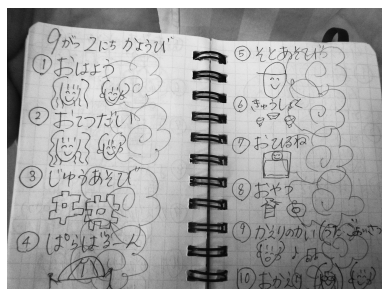 9がつ2にち かようび
① おはよう
② おてつだい
③ じゆうあそび
④ ぱらばるーん
⑤ そとあそび
⑥ きゅうしょく
⑦ おひるね
⑧ おやつ
⑨ かえりのかい(うた、ごあいさつ
⑩ おかえり